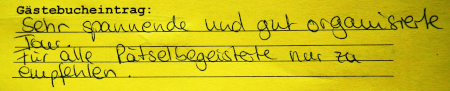 Gästebucheintrag:
Sehr spannende und gut organisierte
Tour.
Für alle Rätselbegeisterte nur zu
empfehlen.